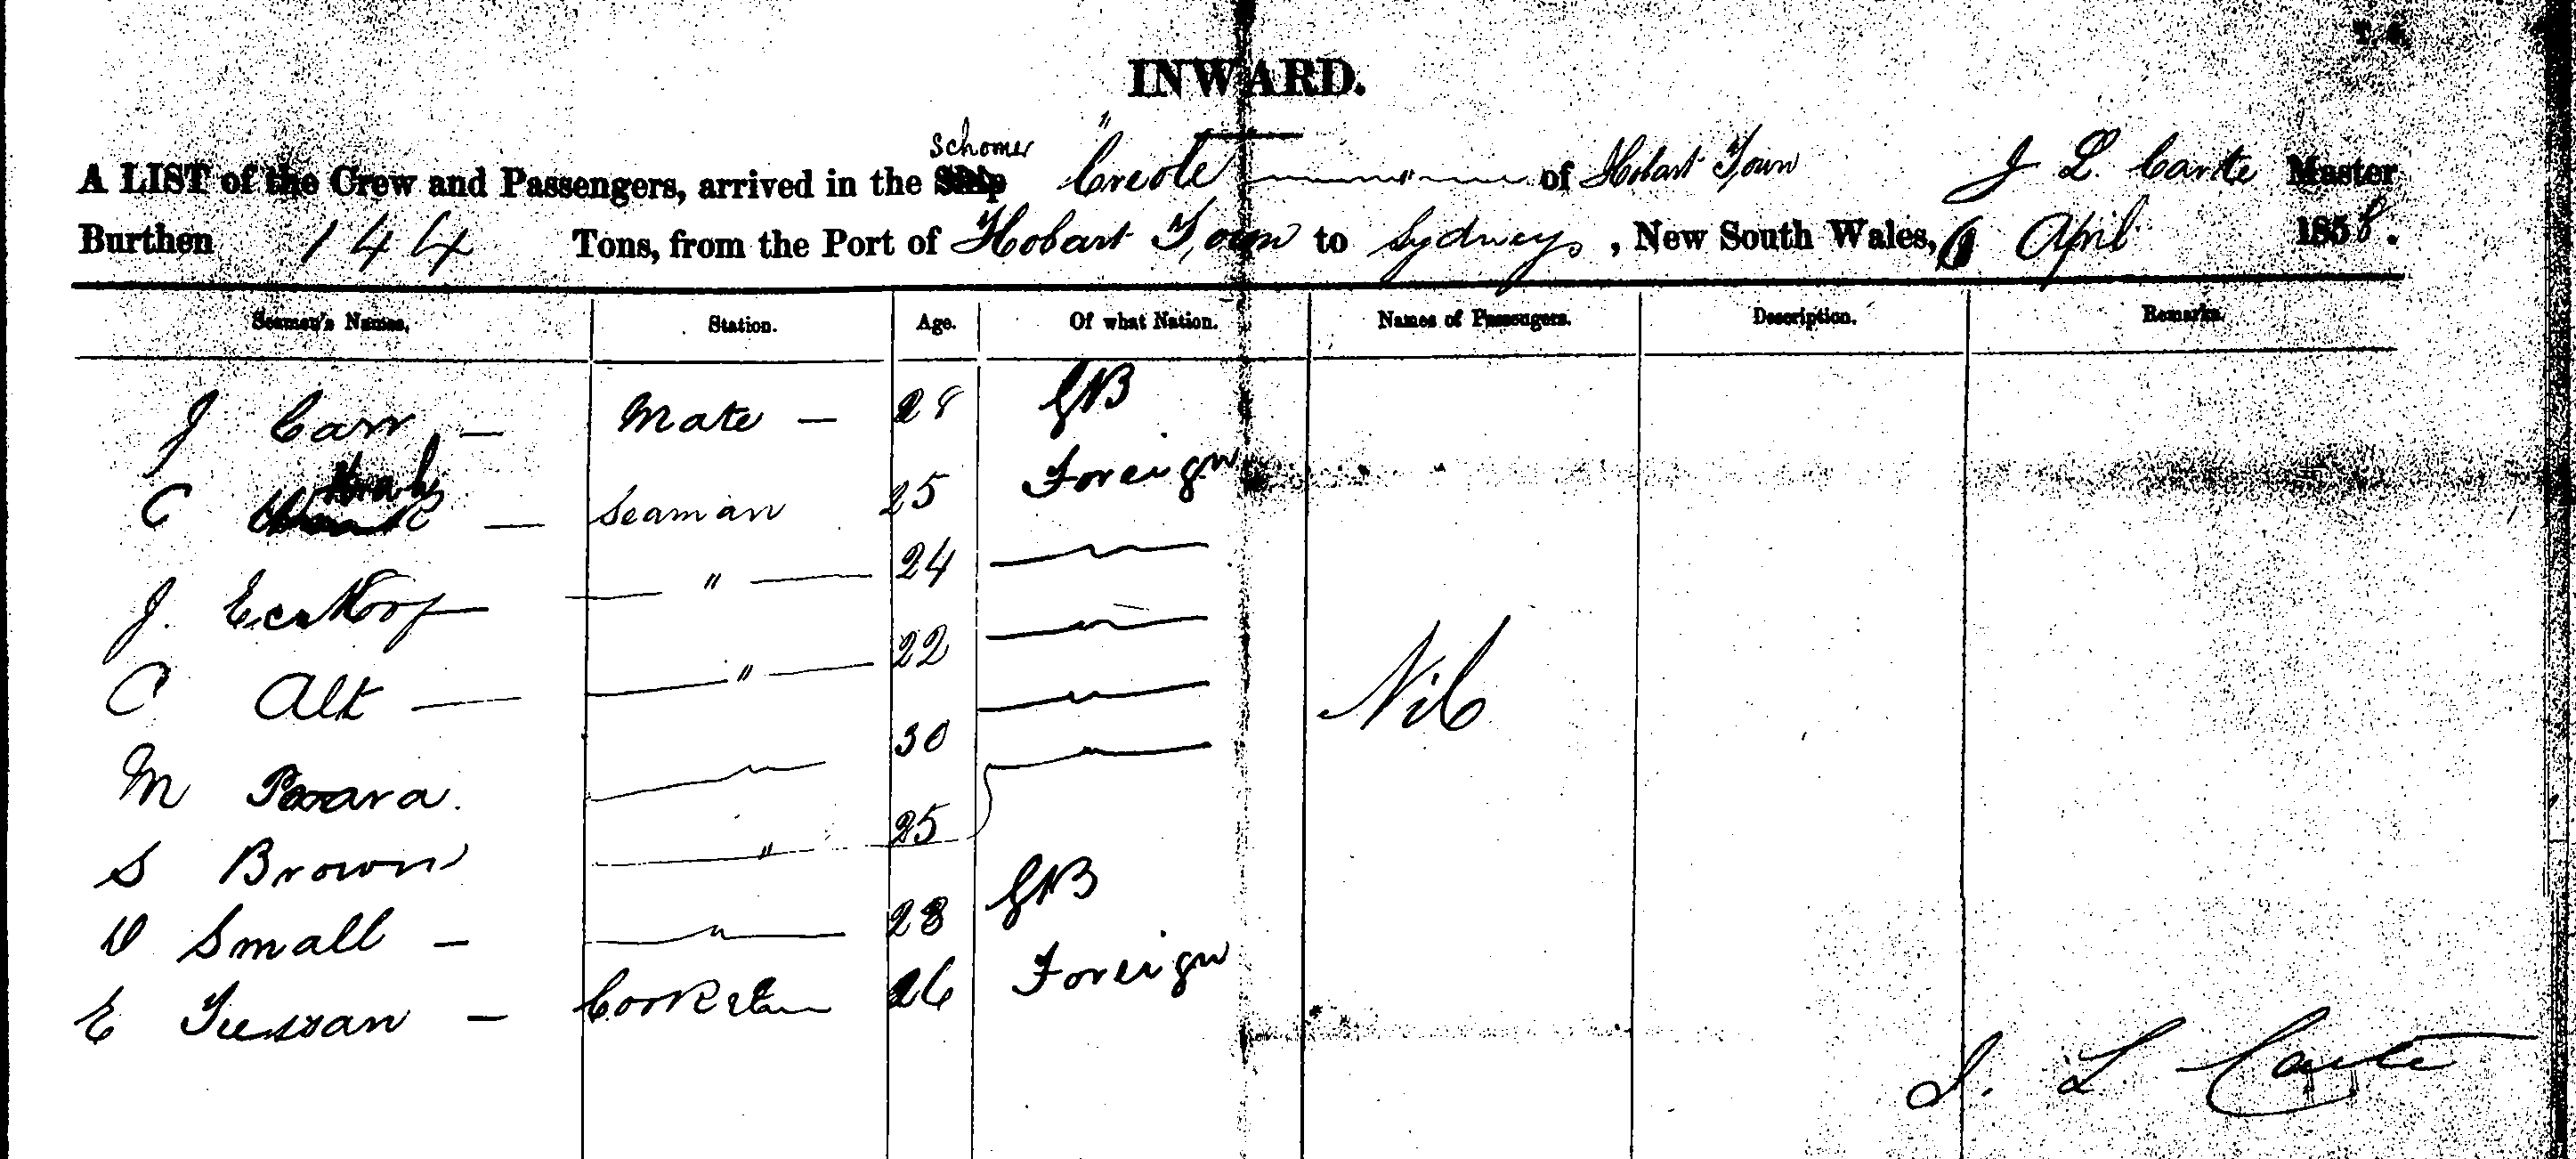 INWARD.
A LIST of the Crew and Passengers, arrived in the Ship Schoner "Creole" of Hobart Town J L. Carte Master
Burthen 144 Tons, from the Port of Hobart Town to Sydney, New South Wales, 6 April 1858.
Seamen's Names. Station. Age. Of what Nation. Names of Passengers. Description. Remarks.
J Carr — Mate — 28 GB
C — Seaman 25 Foreign
J. — " — 24 — " —
C Alt — — " — 22 — " —
M — " — 30 — " —
Nil
S Brown — " — 25 — " —
D Small — — " — 28 GB
E — Cook 26 Foreign
J. L Carte